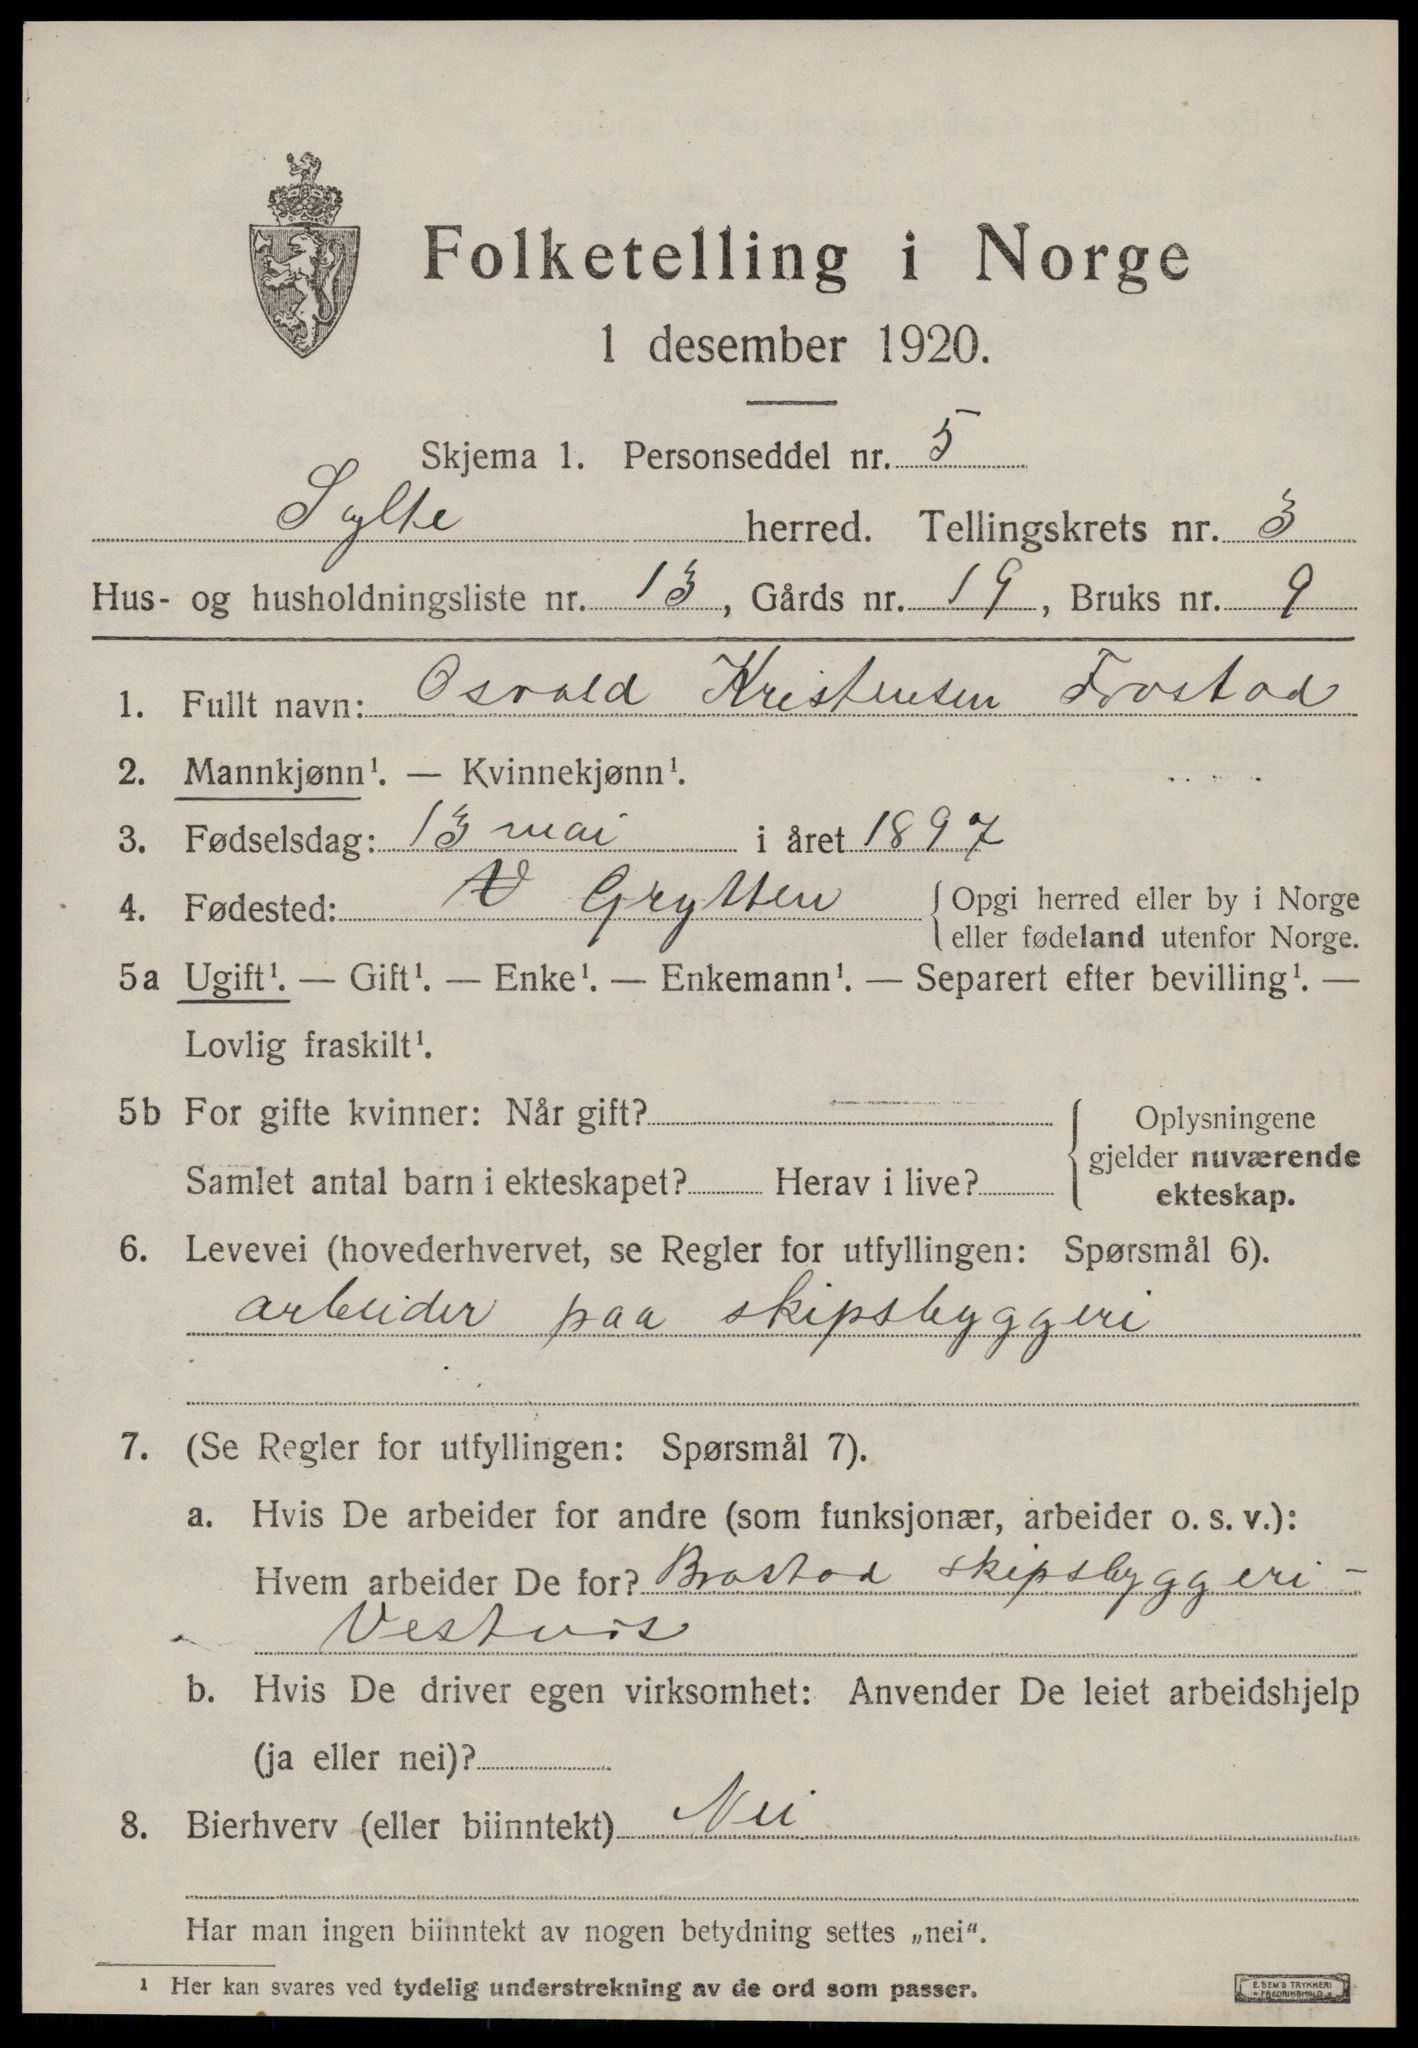 Folketelling i Norge
1 desember 1920.
Skjema 1. Personseddel nr. 5
Sylte herred. Tellingskrets nr. 3
Hus- og husholdningsliste nr. 13, Gårds nr. 19, Bruks nr. 9
1. Fullt navn: Osvald Kristensen Frostad
2. Mannkjønn¹. — Kvinnekjønn¹.
3. Fødselsdag: 13 mai i året 1897
4. Fødested: Grytten {Opgi herred eller by i Norge
eller fødeland utenfor Norge.
5a Ugift¹. — Gift¹. — Enke¹. — Enkemann¹. — Separert efter bevilling¹. —
Lovlig fraskilt¹.
5b For gifte kvinner: Når gift? { Oplysningene
gjelder nuværende
Samlet antal barn i ekteskapet? Herav i live? ekteskap.
6. Levevei (hovederhvervet, se Regler for utfyllingen: Spørsmål 6).
arbeider paa skipsbyggeri
7. (Se Regler for utfyllingen: Spørsmål 7).
a. Hvis De arbeider for andre (som funksjonær, arbeider o. s. v.):
Hvem arbeider De for? Brastad skipsbyggeri -
b. Hvis De driver egen virksomhet: Anvender De leiet arbeidshjelp
(ja eller nei)?
8. Bierhverv (eller biinntekt) Nei
Har man ingen biinntekt av nogen betydning settes „nei“.
¹ Her kan svares ved tydelig understrekning av de ord som passer.
E. SEM'S TRYKKERI
FREDRIKSHALD